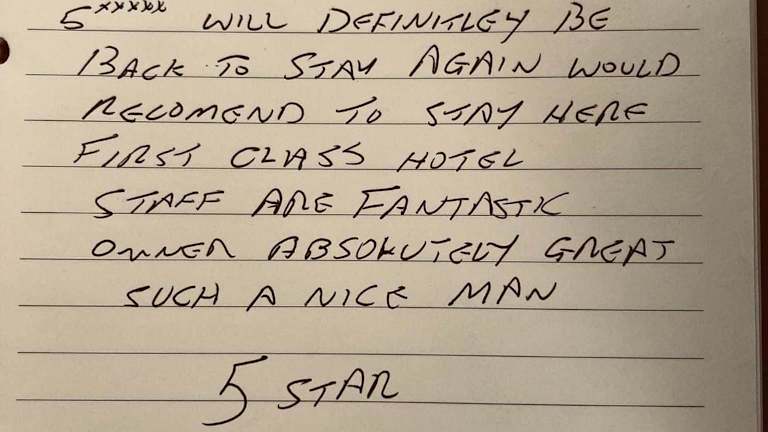 5***** WILL DEFINITLEY BE
BACK TO STAY AGAIN WOULD
RECOMEND TO STAY HERE
FIRST CLASS HOTEL
STAFF ARE FANTASTIC
OWNER ABSOLUTELY GREAT
SUCH A NICE MAN
5 STAR